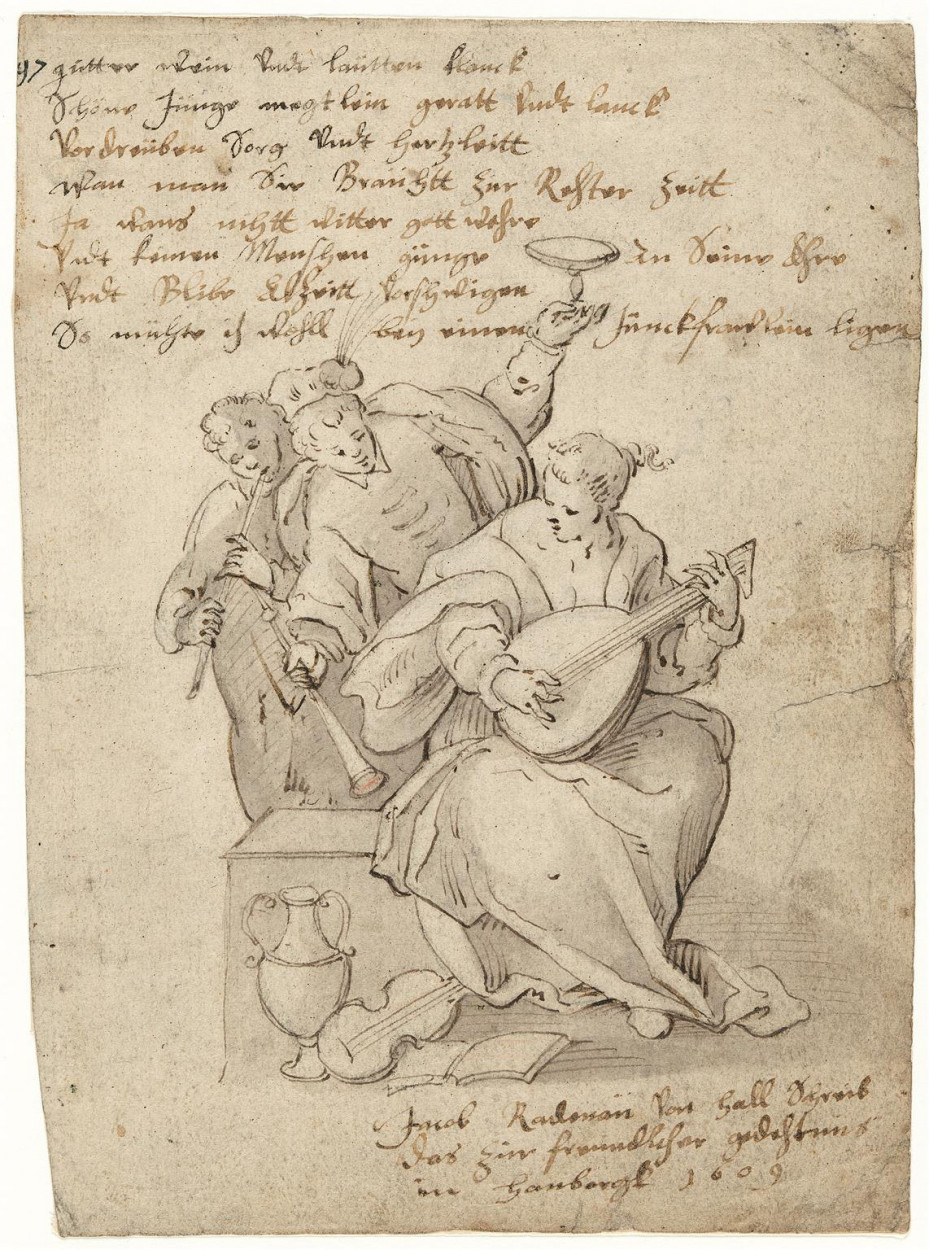 97 gutter wein Undt lautten klanck
Schöne Junge megtlein geratt Undt lanck
Vordreiben Sorg Undt hertzleitt
Wan man Sie Brauchtt Zur Rechter Zeitt
Ja wans nichtt witter gott wehre
Undt keinen Menschen günge An Seine Ehre
Undt Blibe Alzeitt Vorschwigen
So müchte ich wohll bey einen Junckfrawlein ligen
Jacob Von hall Schreib
das Zur freundlicher gedechtnus
in hamborgk 1609